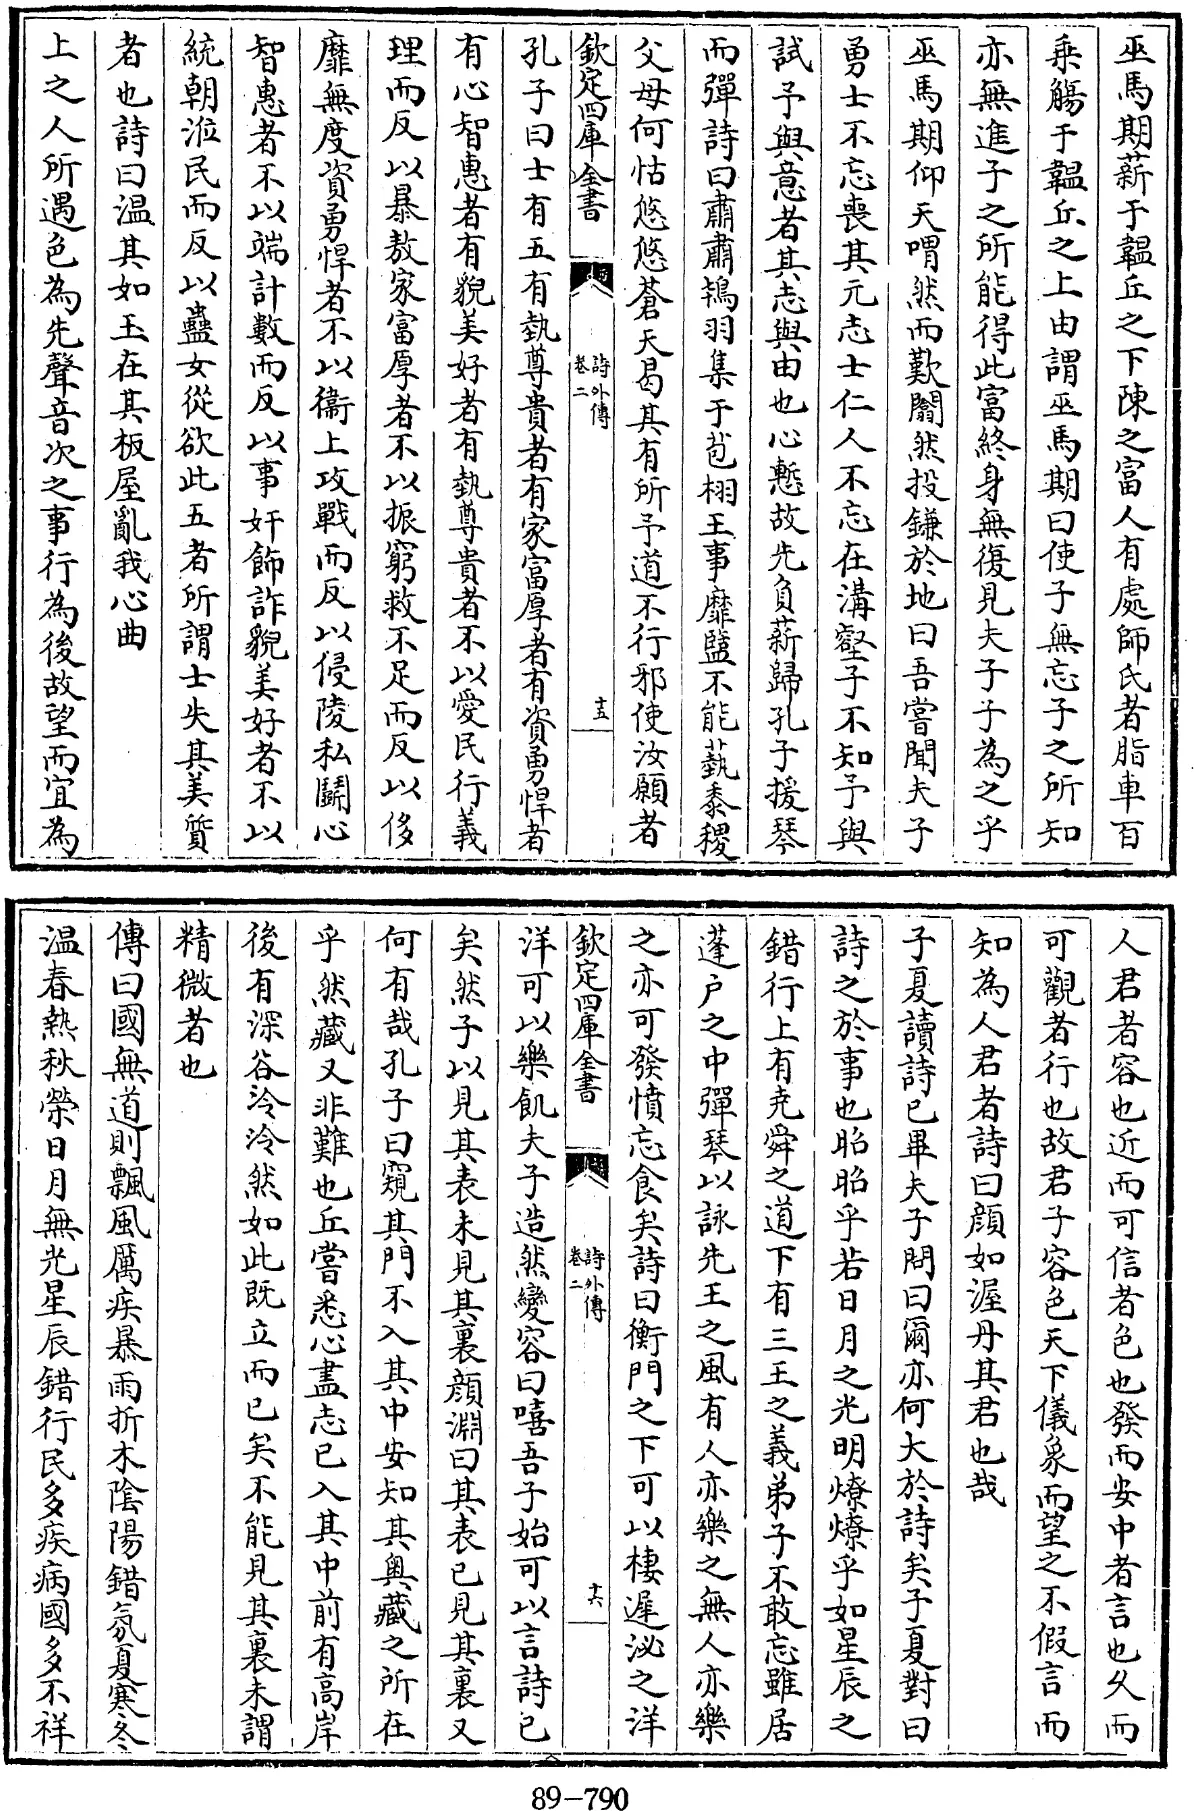 巫馬期薪于韞丘之下陳之富人有處師氏者脂車百
乗觴于韞丘之上由謂巫馬期曰使子無忘子之所知
亦無進子之所能得此富終身無復見夫子子為之乎
巫馬期仰天喟然而歎闟然投鎌於地曰吾嘗聞夫子
勇士不忘喪其元志士仁人不忘在溝壑子不知予與
試予與意者其志與由也心慙故先負薪歸孔子援琴
而彈詩曰肅肅鴇羽集于苞栩王事靡盬不能蓺黍稷
父母何怙悠悠蒼天曷其有所予道不行邪使汝願者
欽定四庫全書
詩外傳
卷二
十五
孔子曰士有五有埶尊貴者有家富厚者有資勇悍者
有心智惠者有貌美好者有埶尊貴者不以愛民行義
理而反以暴敖家富厚者不以振窮救不足而反以侈
靡無度資勇悍者不以衞上攻戰而反以侵陵私鬬心
智惠者不以端計數而反以事奸飾詐貌美好者不以
統朝涖民而反以蠱女從欲此五者所謂士失其美質
者也詩曰温其如玉在其板屋亂我心曲
上之人所遇色為先聲音次之事行為後故望而宜為
人君者容也近而可信者色也發而安中者言也久而
可觀者行也故君子容色天下儀象而望之不假言而
知為人君者詩曰顔如渥丹其君也哉
子夏讀詩已畢夫子問曰爾亦何大於詩矣子夏對曰
詩之於事也昭昭乎若日月之光明燎燎乎如星辰之
錯行上有堯舜之道下有三王之義弟子不敢忘雖居
蓬户之中彈琴以詠先王之風有人亦樂之無人亦樂
之亦可發憤忘食矣詩曰衡門之下可以棲遲泌之洋
欽定四庫全書
詩外傳
卷二
十六
洋可以樂飢夫子造然變容曰嘻吾子始可以言詩已
矣然子以見其表未見其裏顔淵曰其表已見其裏又
何有哉孔子曰窺其門不入其中安知其奥藏之所在
乎然藏又非難也丘嘗悉心盡志已入其中前有高岸
後有深谷泠泠然如此既立而已矣不能見其裏未謂
精微者也
傳曰國無道則飄風厲疾暴雨折木陰陽錯氛夏寒冬
温春熱秋榮日月無光星辰錯行民多疾病國多不祥
89-790